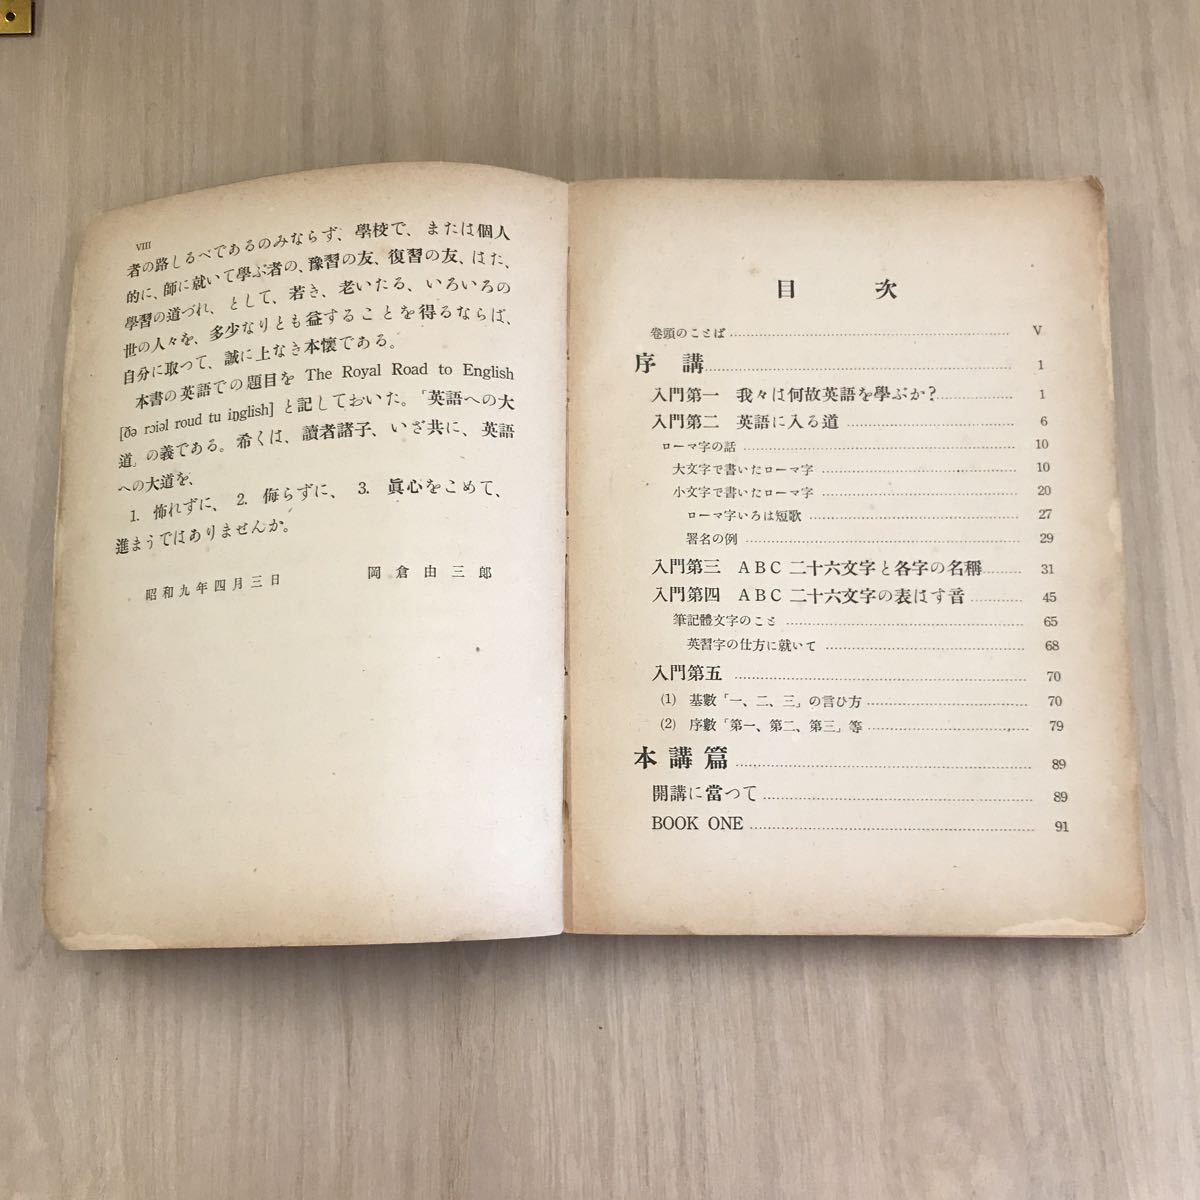 VIII
者の路しるべであるのみならず、學校で、または個人
的に、師に就いて學ぶ者の、豫習の友、復習の友、はた、
學習の道づれ、として、若き、老いたる、いろいろの
世の人々を、多少なりとも益することを得るならば、
自分に取つて、誠に上なき本懷である。
本書の英語での題目を The Royal Road to English
[ðə rɔiəl roud tu iŋgliʃ] と記しておいた。「英語への大
道」の義である。希くは、讀者諸子、いざ共に、英語
への大道を、
1. 怖れずに、 2. 侮らずに、 3. 眞心をこめて、
進まうではありませんか。
昭和九年四月三日 岡倉由三郎
目次
卷頭のことば V
序講 1
入門第一 我々は何故英語を學ぶか? 1
入門第二 英語に入る道 6
ローマ字の話 10
大文字で書いたローマ字 10
小文字で書いたローマ字 20
ローマ字いろは短歌 27
署名の例 29
入門第三 ABC 二十六文字と各字の名稱 31
入門第四 ABC 二十六文字の表はす音 45
筆記體文字のこと 65
英習字の仕方に就いて 68
入門第五 70
(1) 基數「一、二、三」の言ひ方 70
(2) 序數「第一、第二、第三」等 79
本講篇 89
開講に當つて 89
BOOK ONE 91